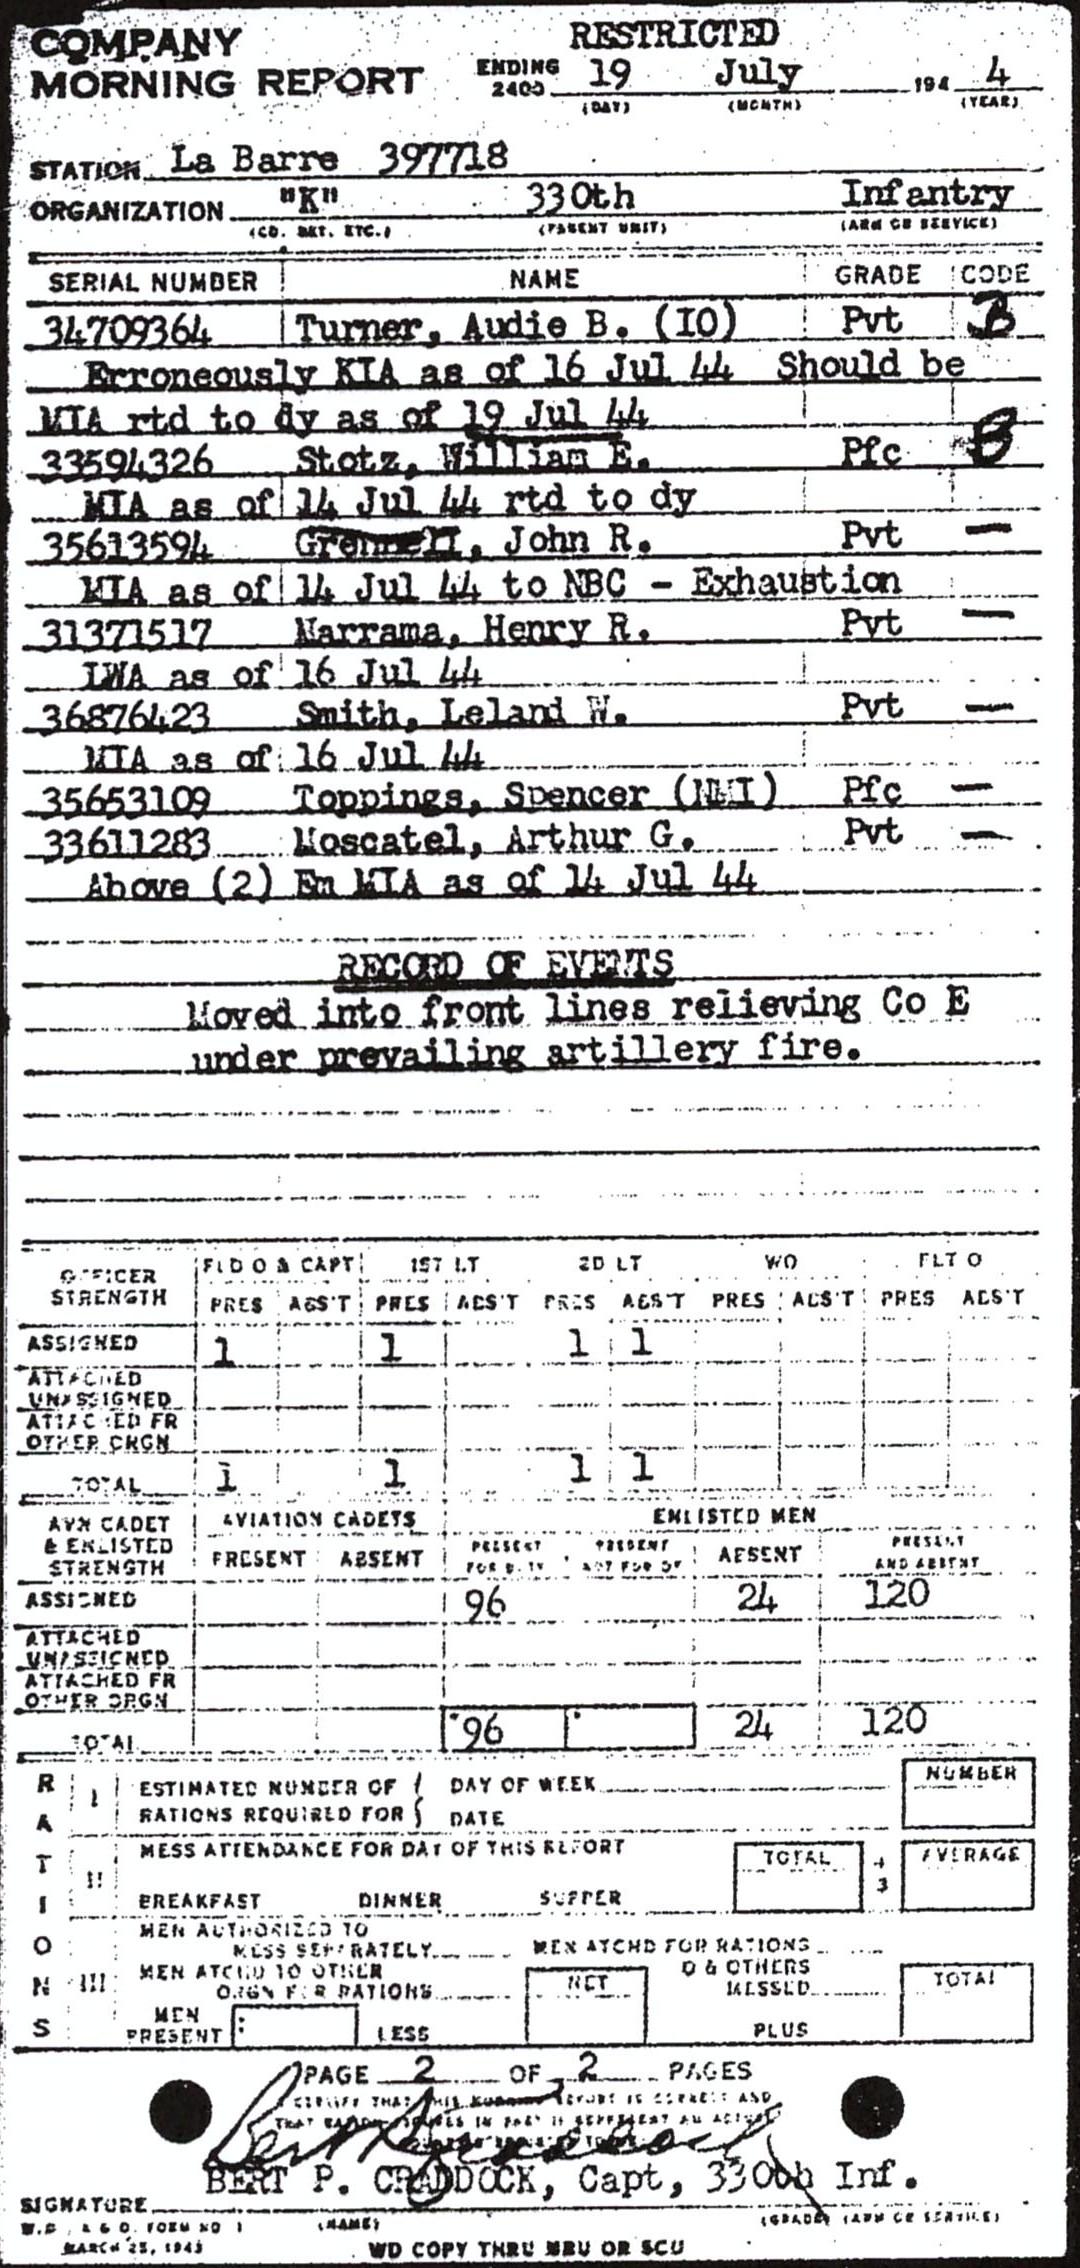 COMPANY
MORNING REPORT
RESTRICTED
ENDING 2400 19 July 194 4
(DAY) (MONTH) (YEAR)
STATION La Barre 397718
ORGANIZATION "K" 330th Infantry
(CO. DET. ETC.) (PARENT UNIT) (ARM OR SERVICE)
SERIAL NUMBER NAME GRADE CODE
34709364 Turner, Audie B. (IO) Pvt B
Erroneously KIA as of 16 Jul 44 Should be
MIA rtd to dy as of 19 Jul 44
33594326 Stotz, William E. Pfc B
MIA as of 14 Jul 44 rtd to dy
35613594 John R. Pvt —
MIA as of 14 Jul 44 to NBC - Exhaustion
31371517 Narrama, Henry R. Pvt —
LWA as of 16 Jul 44
36876423 Smith, Leland W. Pvt —
MIA as of 16 Jul 44
35653109 Toppings, Spencer (NMI) Pfc —
33611283 Moscatel, Arthur G. Pvt —
Above (2) Em MIA as of 14 Jul 44
RECORD OF EVENTS
Moved into front lines relieving Co E
under prevailing artillery fire.
OFFICER STRENGTH FLD O & CAPT 1ST LT 2D LT WO FLT O
PRES ABS'T PRES ABS'T PRES ABS'T PRES ABS'T PRES ABS'T
ASSIGNED 1 1 1 1
ATTACHED UNASSIGNED
ATTACHED FR OTHER ORGN
TOTAL 1 1 1 1
AVN CADET & ENLISTED STRENGTH AVIATION CADETS ENLISTED MEN
PRESENT ABSENT PRESENT FOR DUTY PRESENT NOT FOR DY ABSENT PRESENT AND ABSENT
ASSIGNED 96 24 120
ATTACHED UNASSIGNED
ATTACHED FR OTHER ORGN
TOTAL 96 24 120
RATIONS
I ESTIMATED NUMBER OF RATIONS REQUIRED FOR { DAY OF WEEK NUMBER
DATE
II MESS ATTENDANCE FOR DAY OF THIS REPORT TOTAL ÷ 3 AVERAGE
BREAKFAST DINNER SUPPER
III MEN AUTHORIZED TO MESS SEPARATELY MEN ATCHD FOR RATIONS
MEN ATCHD TO OTHER ORGN FOR RATIONS NET O & OTHERS MESSED TOTAL
MEN PRESENT LESS PLUS
PAGE 2 OF 2 PAGES
I CERTIFY THAT THIS MORNING REPORT IS CORRECT AND
BERT P. CRADDOCK, Capt, 330th Inf.
SIGNATURE
(NAME) (GRADE) (ARM OR SERVICE)
W.D., A.G.O. FORM NO 1
MARCH 25, 1943
WD COPY THRU MRU OR SCU